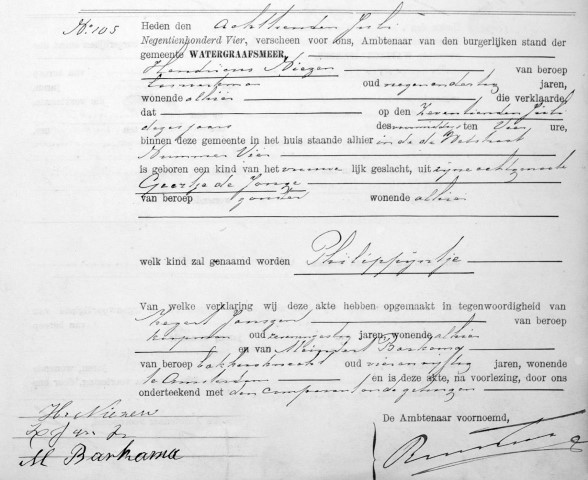 No. 105
Heden den achttienden Juli
Negentienhonderd Vier, verscheen voor ons, Ambtenaar van den burgerlijken stand der
gemeente WATERGRAAFSMEER,
Hendricus Niezen van beroep
oud negenendertig jaren,
wonende alhier die verklaarde
dat op den Zeventienden Juli
dezes jaars des namiddags ten Vier ure,
binnen deze gemeente in het huis staande alhier in de
Nummer Vier
is geboren een kind van het vrouwelijk geslacht, uit zijne echtgenoote
Geertje de Jonge
van beroep zonder wonende alhier
welk kind zal genaamd worden Philippijntje
Van welke verklaring wij deze akte hebben opgemaakt in tegenwoordigheid van
Jansen van beroep
koopman oud jaren, wonende alhier
en van Meindert Barkama
van beroep bakkersknecht oud vierenvijftig jaren, wonende
te Amsterdam en is deze akte, na voorlezing, door ons
onderteekend met den comparant en de getuigen
De Ambtenaar voornoemd,
H. Niezen
M Barkama